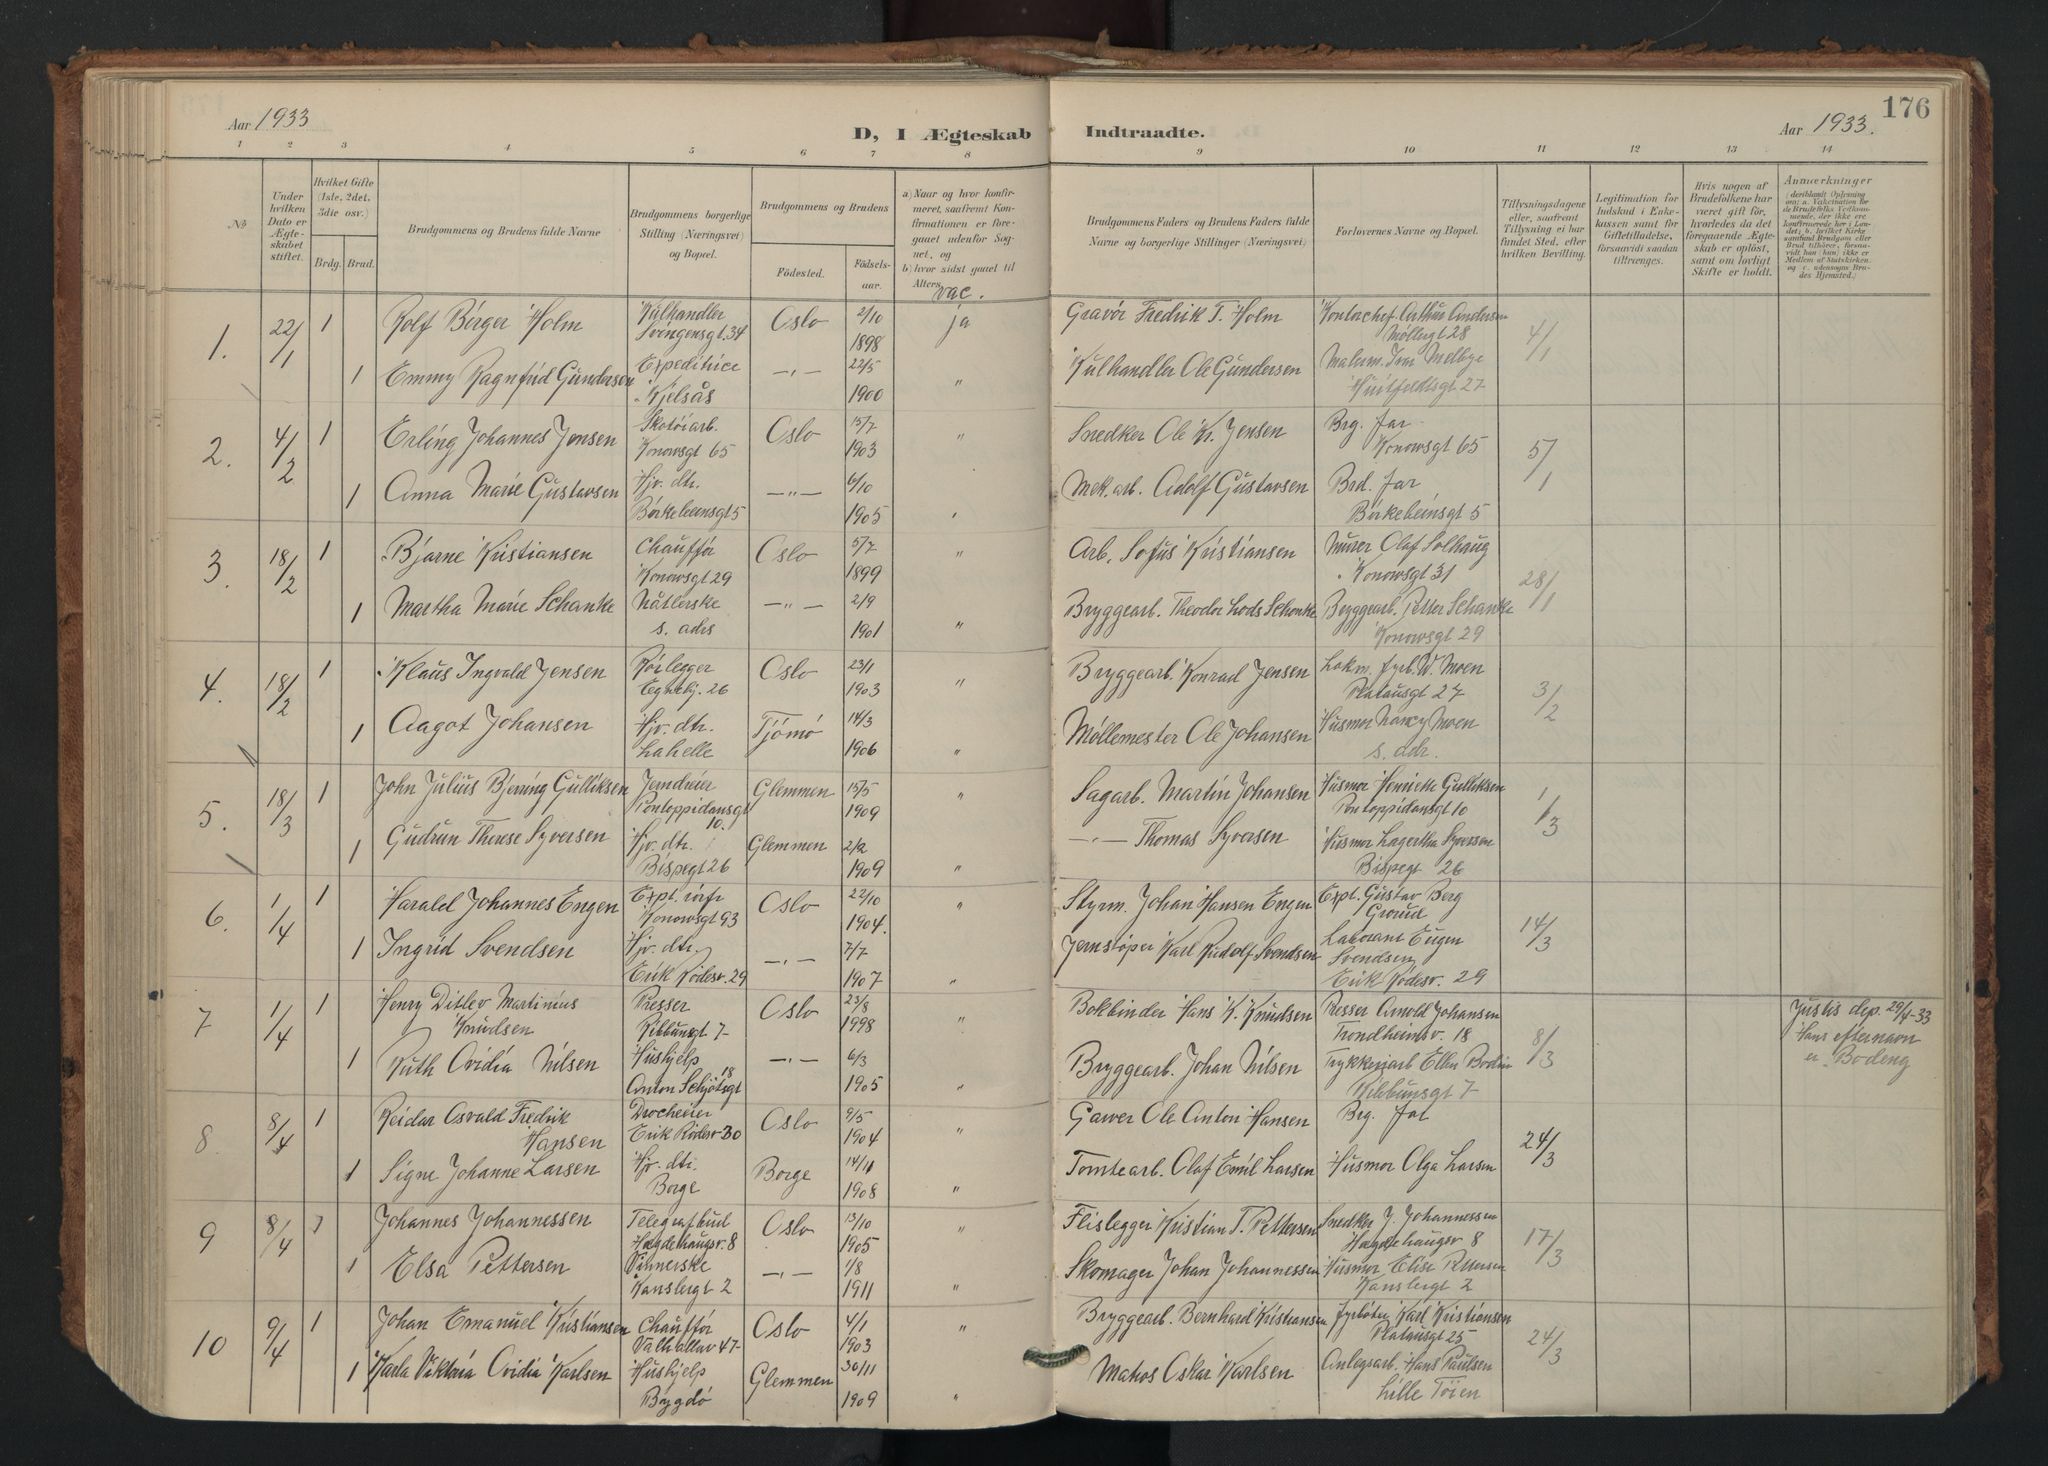 176
Aar 1933
D, I Ægteskab Indtraadte.
Aar 1933.
1 2 3 4 5 6 7 8 9 10 11 12 13 14
No
Under hvilken Dato er Ægteskabet stiftet.
Hvilket Gifte (1ste, 2det, 3die osv.)
Brdg. Brud.
Brudgommens og Brudens fulde Navne
Brudgommens borgerlige Stilling (Næringsvei) og Bopæl.
Brudgommens og Brudens
Födested.
Födselsaar.
a) Naar og hvor konfirmeret, saafremt Konfirmationen er foregaaet udenfor Sognet, og
b) hvor sidst gaaet til Alters.
vac.
Brudgommens Faders og Brudens Faders fulde Navne og borgerlige Stillinger (Næringsvei)
Forlovernes Navne og Bopæl.
Tillysningsdagene eller, saafremt Tillysning ei har fundet Sted, efter hvilken Bevilling.
Legitimation for Indskud i Enkekassen samt for Giftetilladelse, forsaavidt saadan tiltrænges.
Hvis nogen af Brudefolkene har været gift för, hvorledes da det foregaaende Ægteskab er oplöst, samt om lovligt Skifte er holdt.
Anmærkninger
1. 22/1 1 Rolf Berger Holm Kulhandler Svingensgt. 34 Oslo 2/10 1898 ja Gravör Fredrik T. Holm Kontorchef Arthur Andersen Møllergt 28 4/1
1 Emmy Ragnfrid Gundersen Expeditrice Kjelsås -"- 22/5 1900 " Kulhandler Ole Gundersen Malerm. Ivar Melbye Huitfeldtsgt 27
2. 4/2 1 Erling Johannes Jensen Skotöiarb. Konowsgt 65 Oslo 15/7 1903 " Snedker Ole Kr. Jensen Brg. far Konowsgt 65 5/1
1 Anna Marie Gustavsen Hjv. dtr. Birkebeinsgt 5 -"- 6/10 1905 " Mek. arb. Adolf Gustavsen Brd. far Birkebeinsgt 5
3. 18/2 1 Bjarne Kristiansen Chauffør Konowsgt 29 Oslo 5/7 1899 " Arb. Sofus Kristiansen Murer Olaf Solhaug Konowsgt 31 28/1
1 Martha Marie Schanke Nåtlerske s. adrs -"- 2/9 1901 " Bryggearb. Theodor Lods Schanke Bryggearb. Petter Schanke Konowsgt 29
4. 18/2 1 Klaus Ingvald Jensen Rørlegger Egnehj. 26 Oslo 23/1 1903 " Bryggearb. Konrad Jensen Lokm. fyrb. W. Moen Platousgt 27 3/2
1 Aagot Johansen Hjv. dtr. Labelle Tjömö 14/3 1906 " Møllemester Ole Johansen Husmor Nancy Moen s. adr.
5. 18/3 1 John Julius Bjering Gulliksen Jerndreier Pontoppidansgt 10. Glemmen 15/5 1909 " Sagarb. Martin Johansen Husmor Henriette Gulliksen Pontoppidansgt 10 1/3
1 Gudrun Therese Syversen Hjv. dtr. Bispegt 26 Glemmen 2/2 1909 " -"- Thomas Syversen Husmor Lagertha Syversen Bispegt 26
6. 1/4 1 Harald Johannes Engen Expt. Konowsgt 93 Oslo 22/10 1904. " Styrm. Johan Hansen Engen Expt. Gustav Berg Grorud 14/3
1 Ingrid Svendsen Hjv. dtr. Erik Rödesv. 29 -"- 7/7 1907 Jernstöper Karl Rudolf Svendsen Laborant Eugen Svendsen Erik Rödesv. 29
7 1/4 1 Henry Ditlev Martinius Knudsen Presser Ribbunsgt 7 Oslo 23/8 1998 " Bokbinder Hans K. Knudsen Presser Arnold Johansen Trondheimsv. 18 8/3 Justis dep. 29/4-33 Hans efternavn er Bodeng
1 Ruth Ovidia Nilsen Hushjelp Anton Schjötsgt 18 -"- 6/3 1905 " Bryggearb. Johan Nilsen Trykkeriarb Ellen Bodin Ribbunsgt 7
8 8/4 1 Reidar Osvald Fredrik Hansen Drocheeier Erik Rödesv 30 Oslo 9/5 1904 " Garver Ole Anton Hansen Brg. far 24/3
1 Signe Johanne Larsen Hjv. dtr. Borge Borge 14/11 1908 " Tomtearb. Olaf Emil Larsen Husmor Olga Larsen
9 8/4 1 Johannes Johannessen Telegrafbud Hægdehaugsv. 8 Oslo 13/10 1905 " Flislegger Kristian T. Pettersen Snedker J. Johannessen Hægdehaugsv 8 17/3
1 Elsa Pettersen Vinnerske Kanslergt 2 -"- 1/8 1911 " Skomager Johan Johannessen Husmor Elise Pettersen Kanslergt 2
10 9/4 1 Johan Emanuel Kristiansen Chauffør Valhallav 47 Oslo 4/1 1903 " Bryggearb. Bernhard Kristiansen Fyrböter Karl Kristiansen Platousgt 25 24/3
1 Karla Viktoria Ovidia Karlsen Hushjelp Bygdö Glemmen 30/11 1909 " Matros Oskar Karlsen Anlegsarb. Hans Paulsen Lille Töien